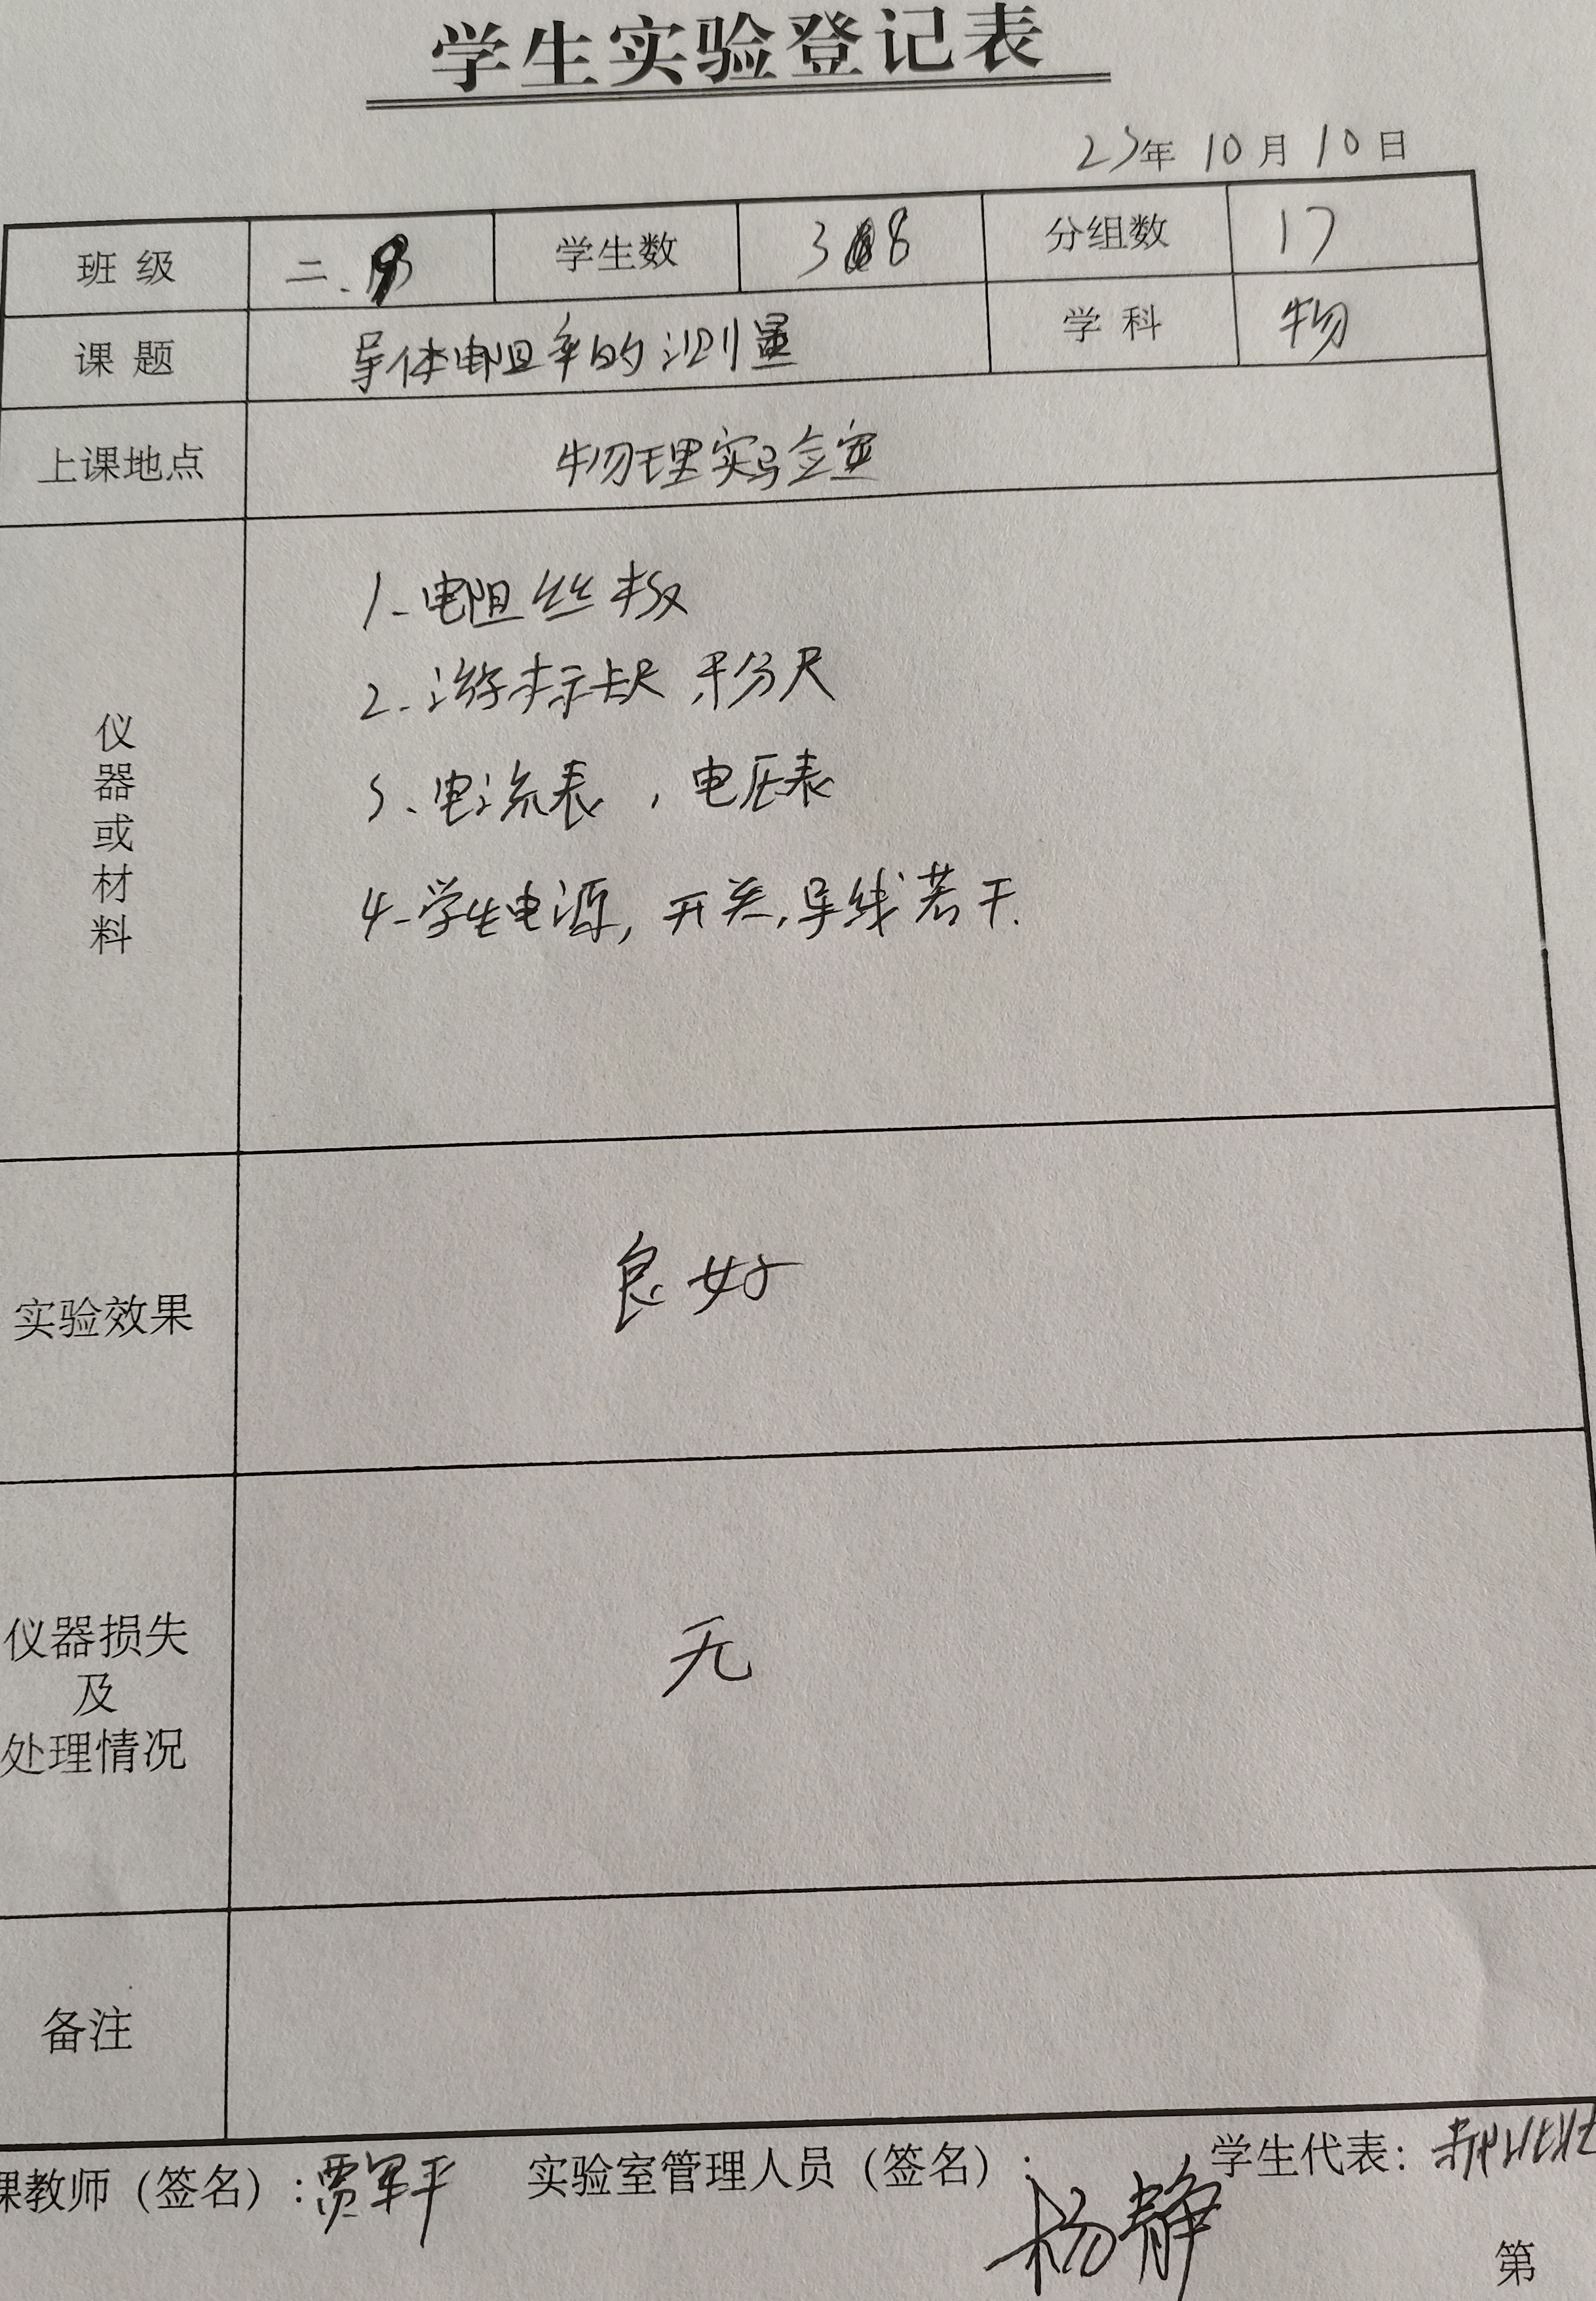 学生实验登记表
23年10月10日
班级 二. 学生数 38 分组数 17
课题 导体电阻率的测量 学科 物
上课地点 物理实验室
仪器或材料
1. 电阻丝板
2. 游标卡尺 千分尺
3、电流表，电压表
4. 学生电源，开关，导线若干.
实验效果 良好
仪器损失
及
处理情况
无
备注
课教师（签名）：贾军平 实验室管理人员（签名）：杨静 学生代表：
第